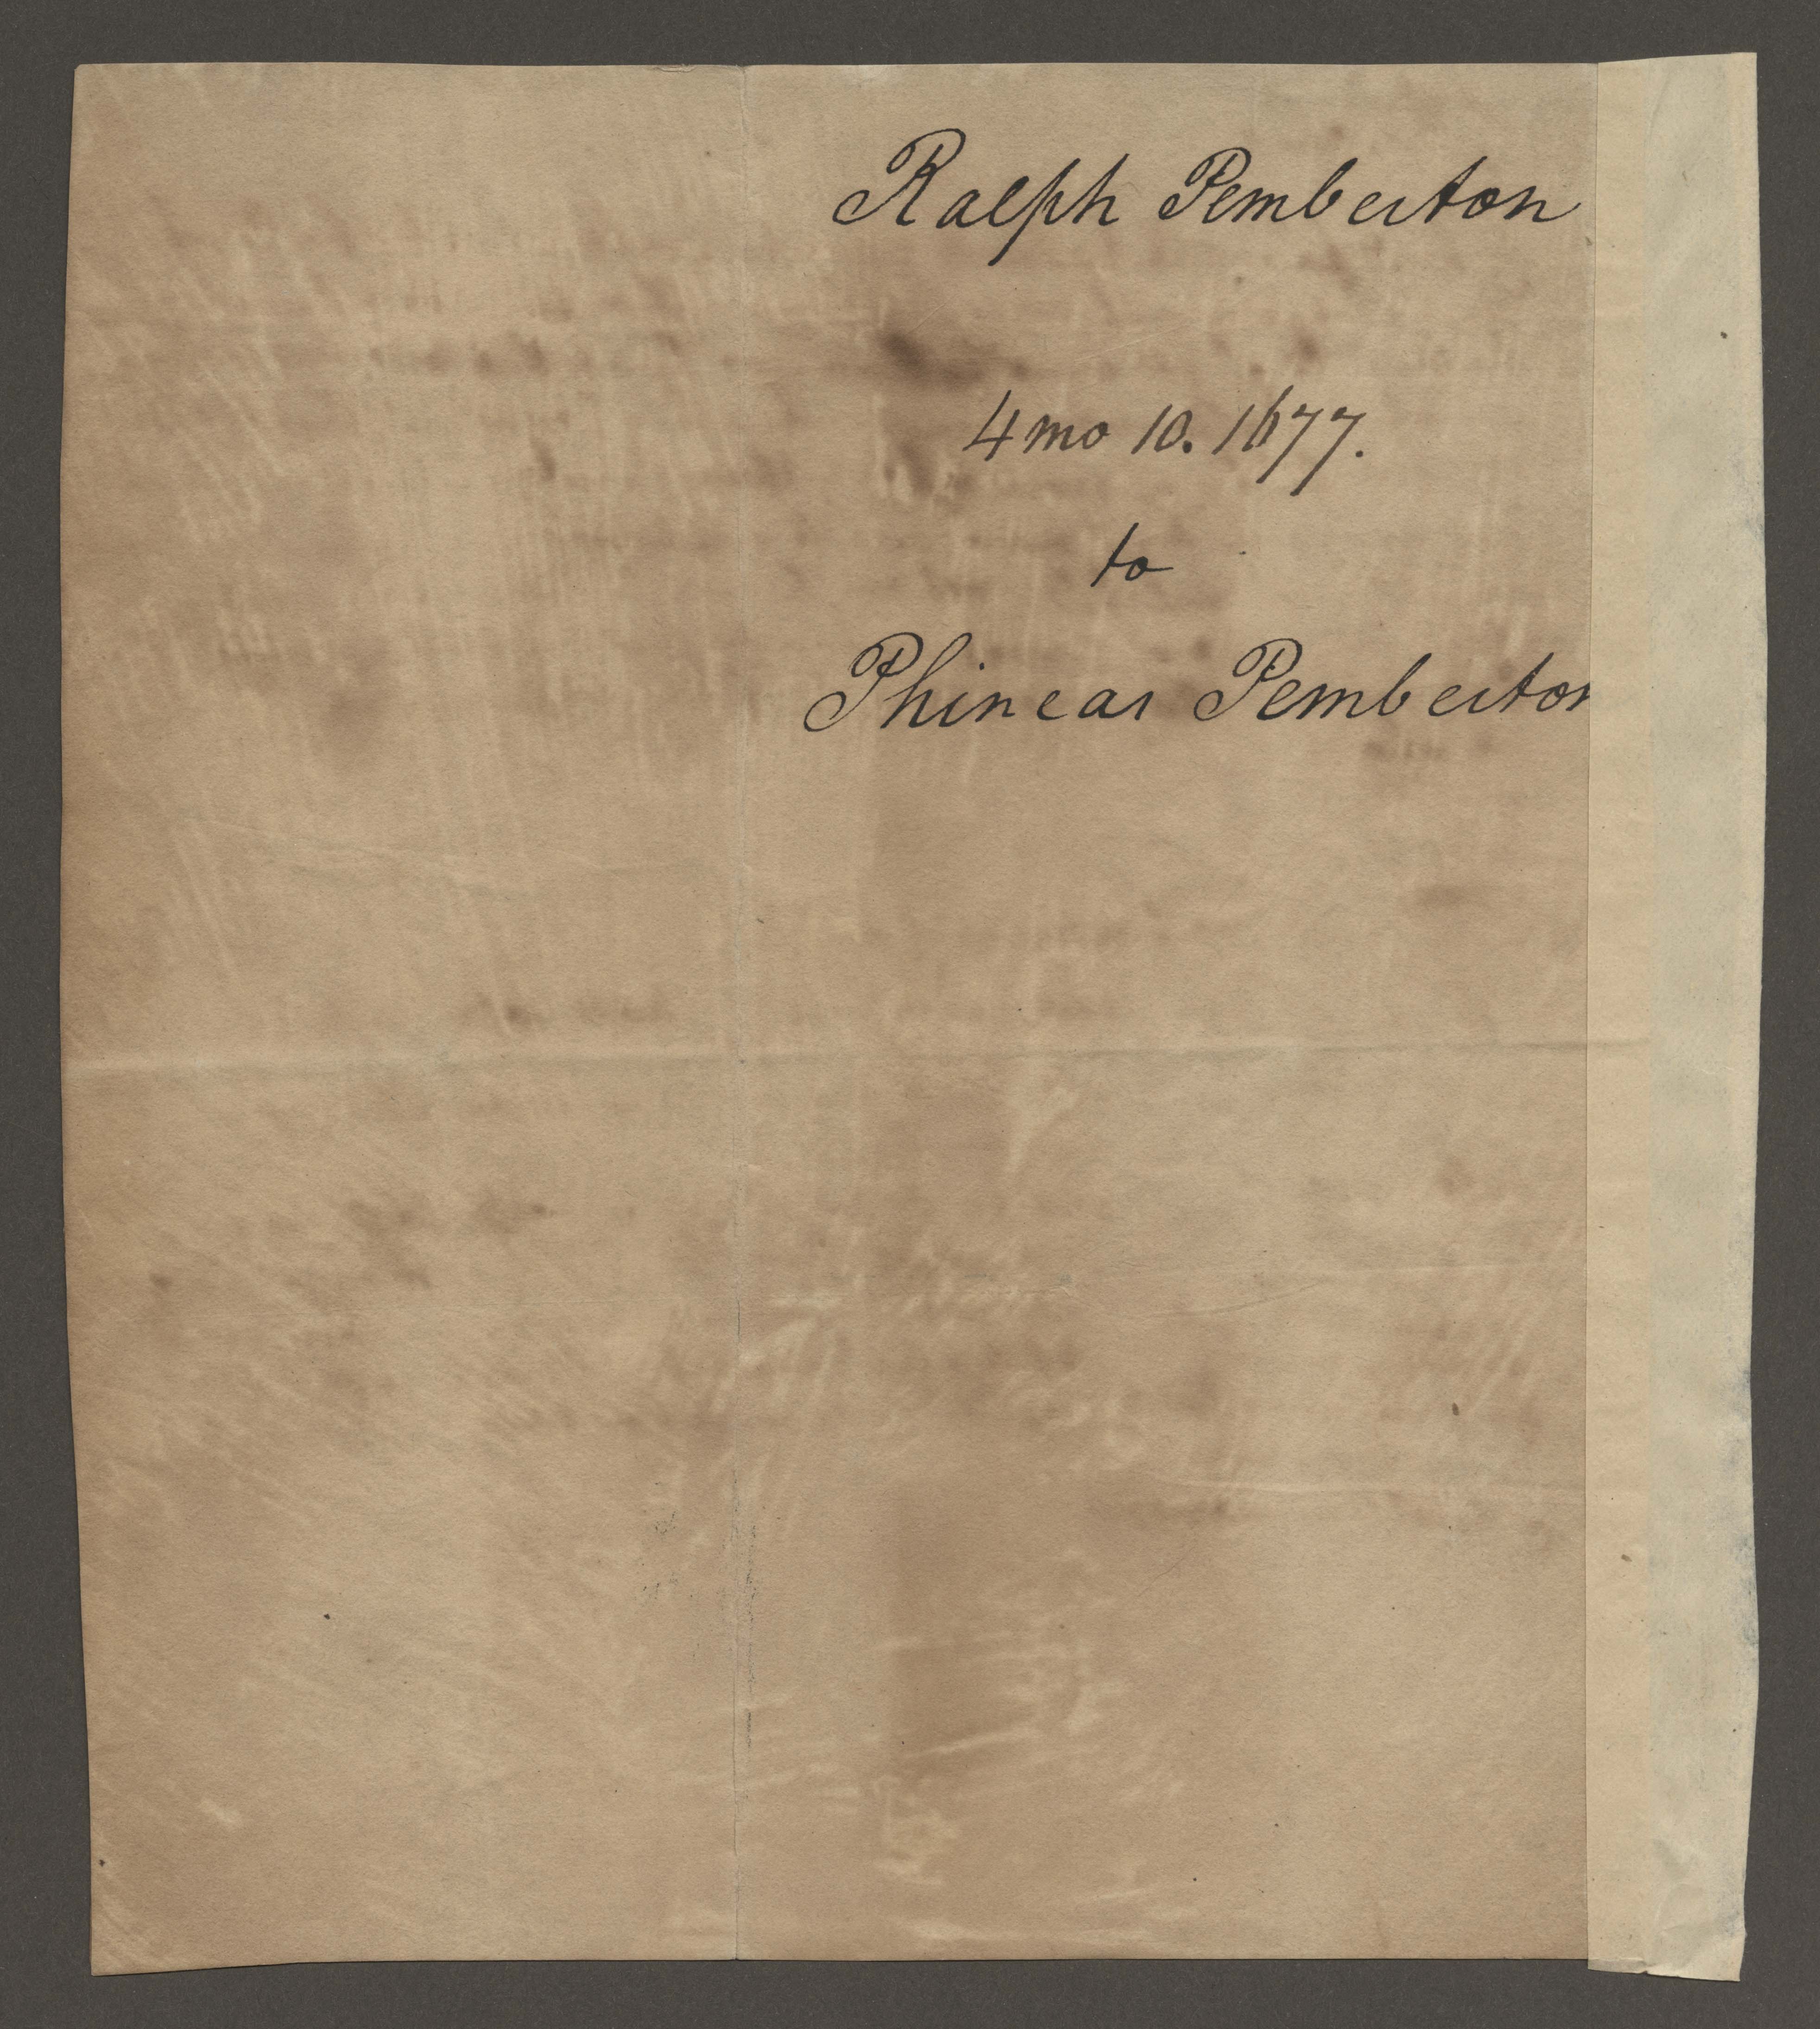 Ralph Pemberton
4 mo 10. 1677.
to
Phineas Pemberton